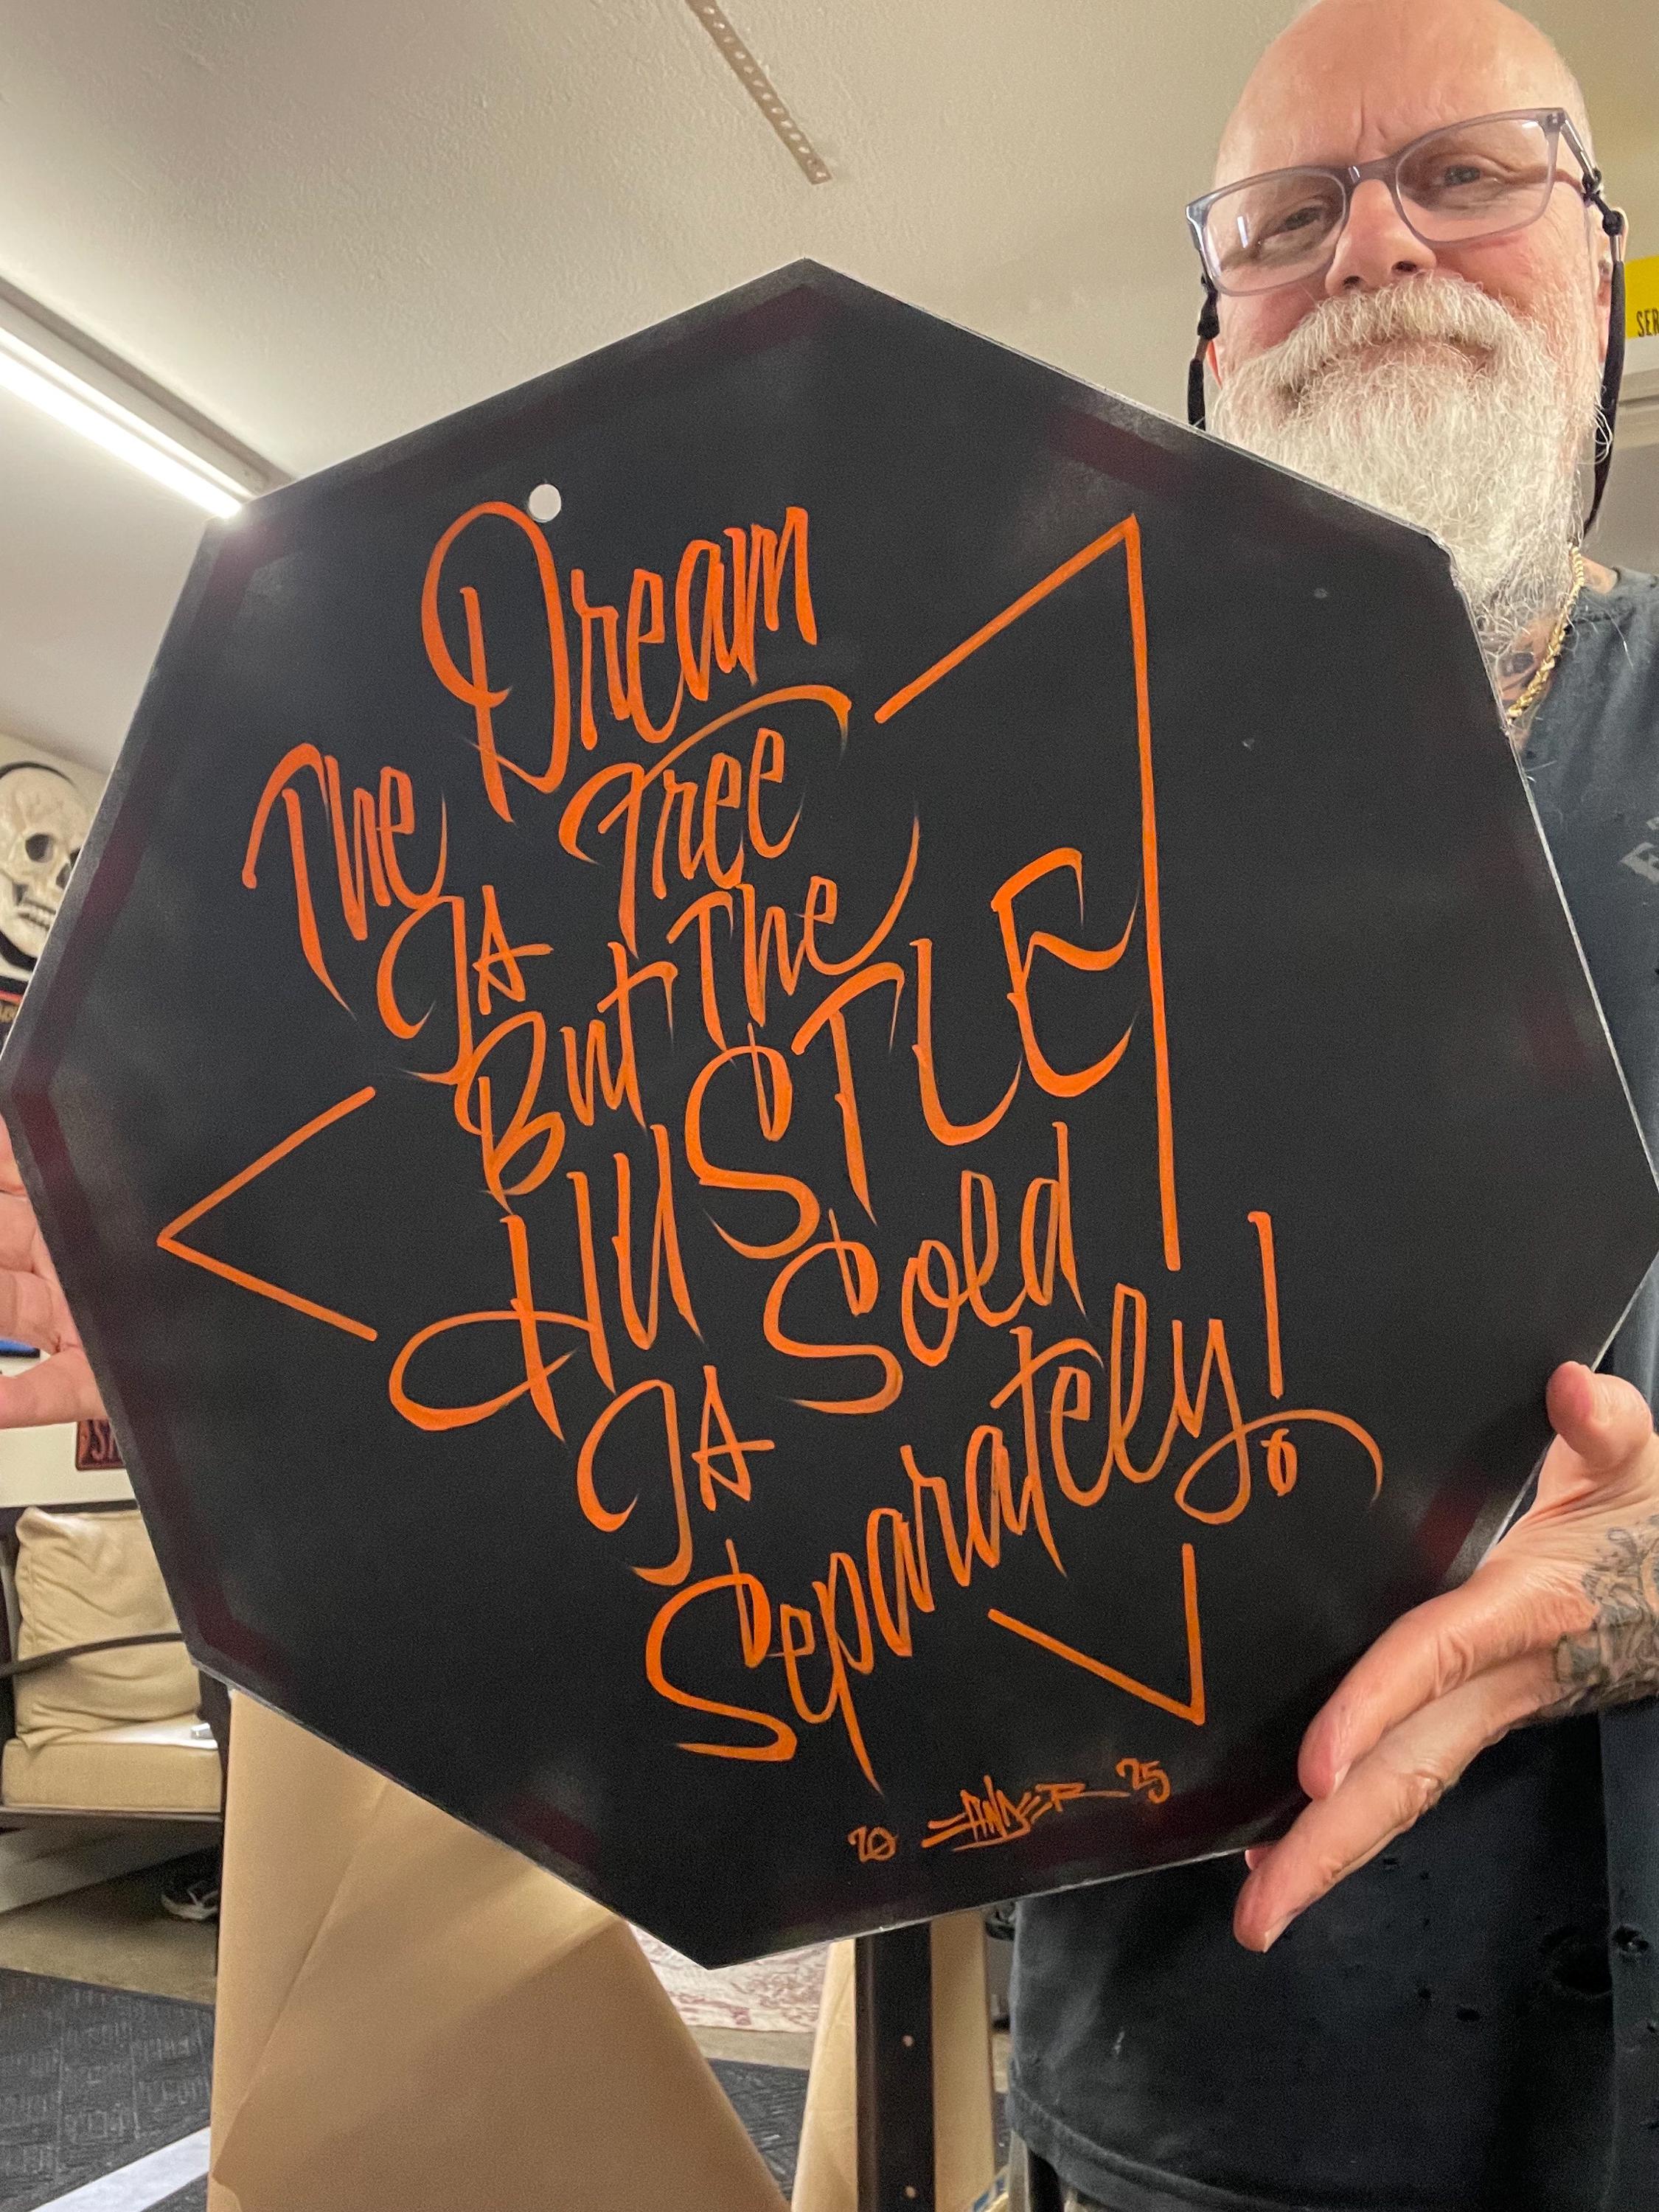 The Dream
Is Free
But The
HUSTLE
Is Sold
Separately!
20 25
SER